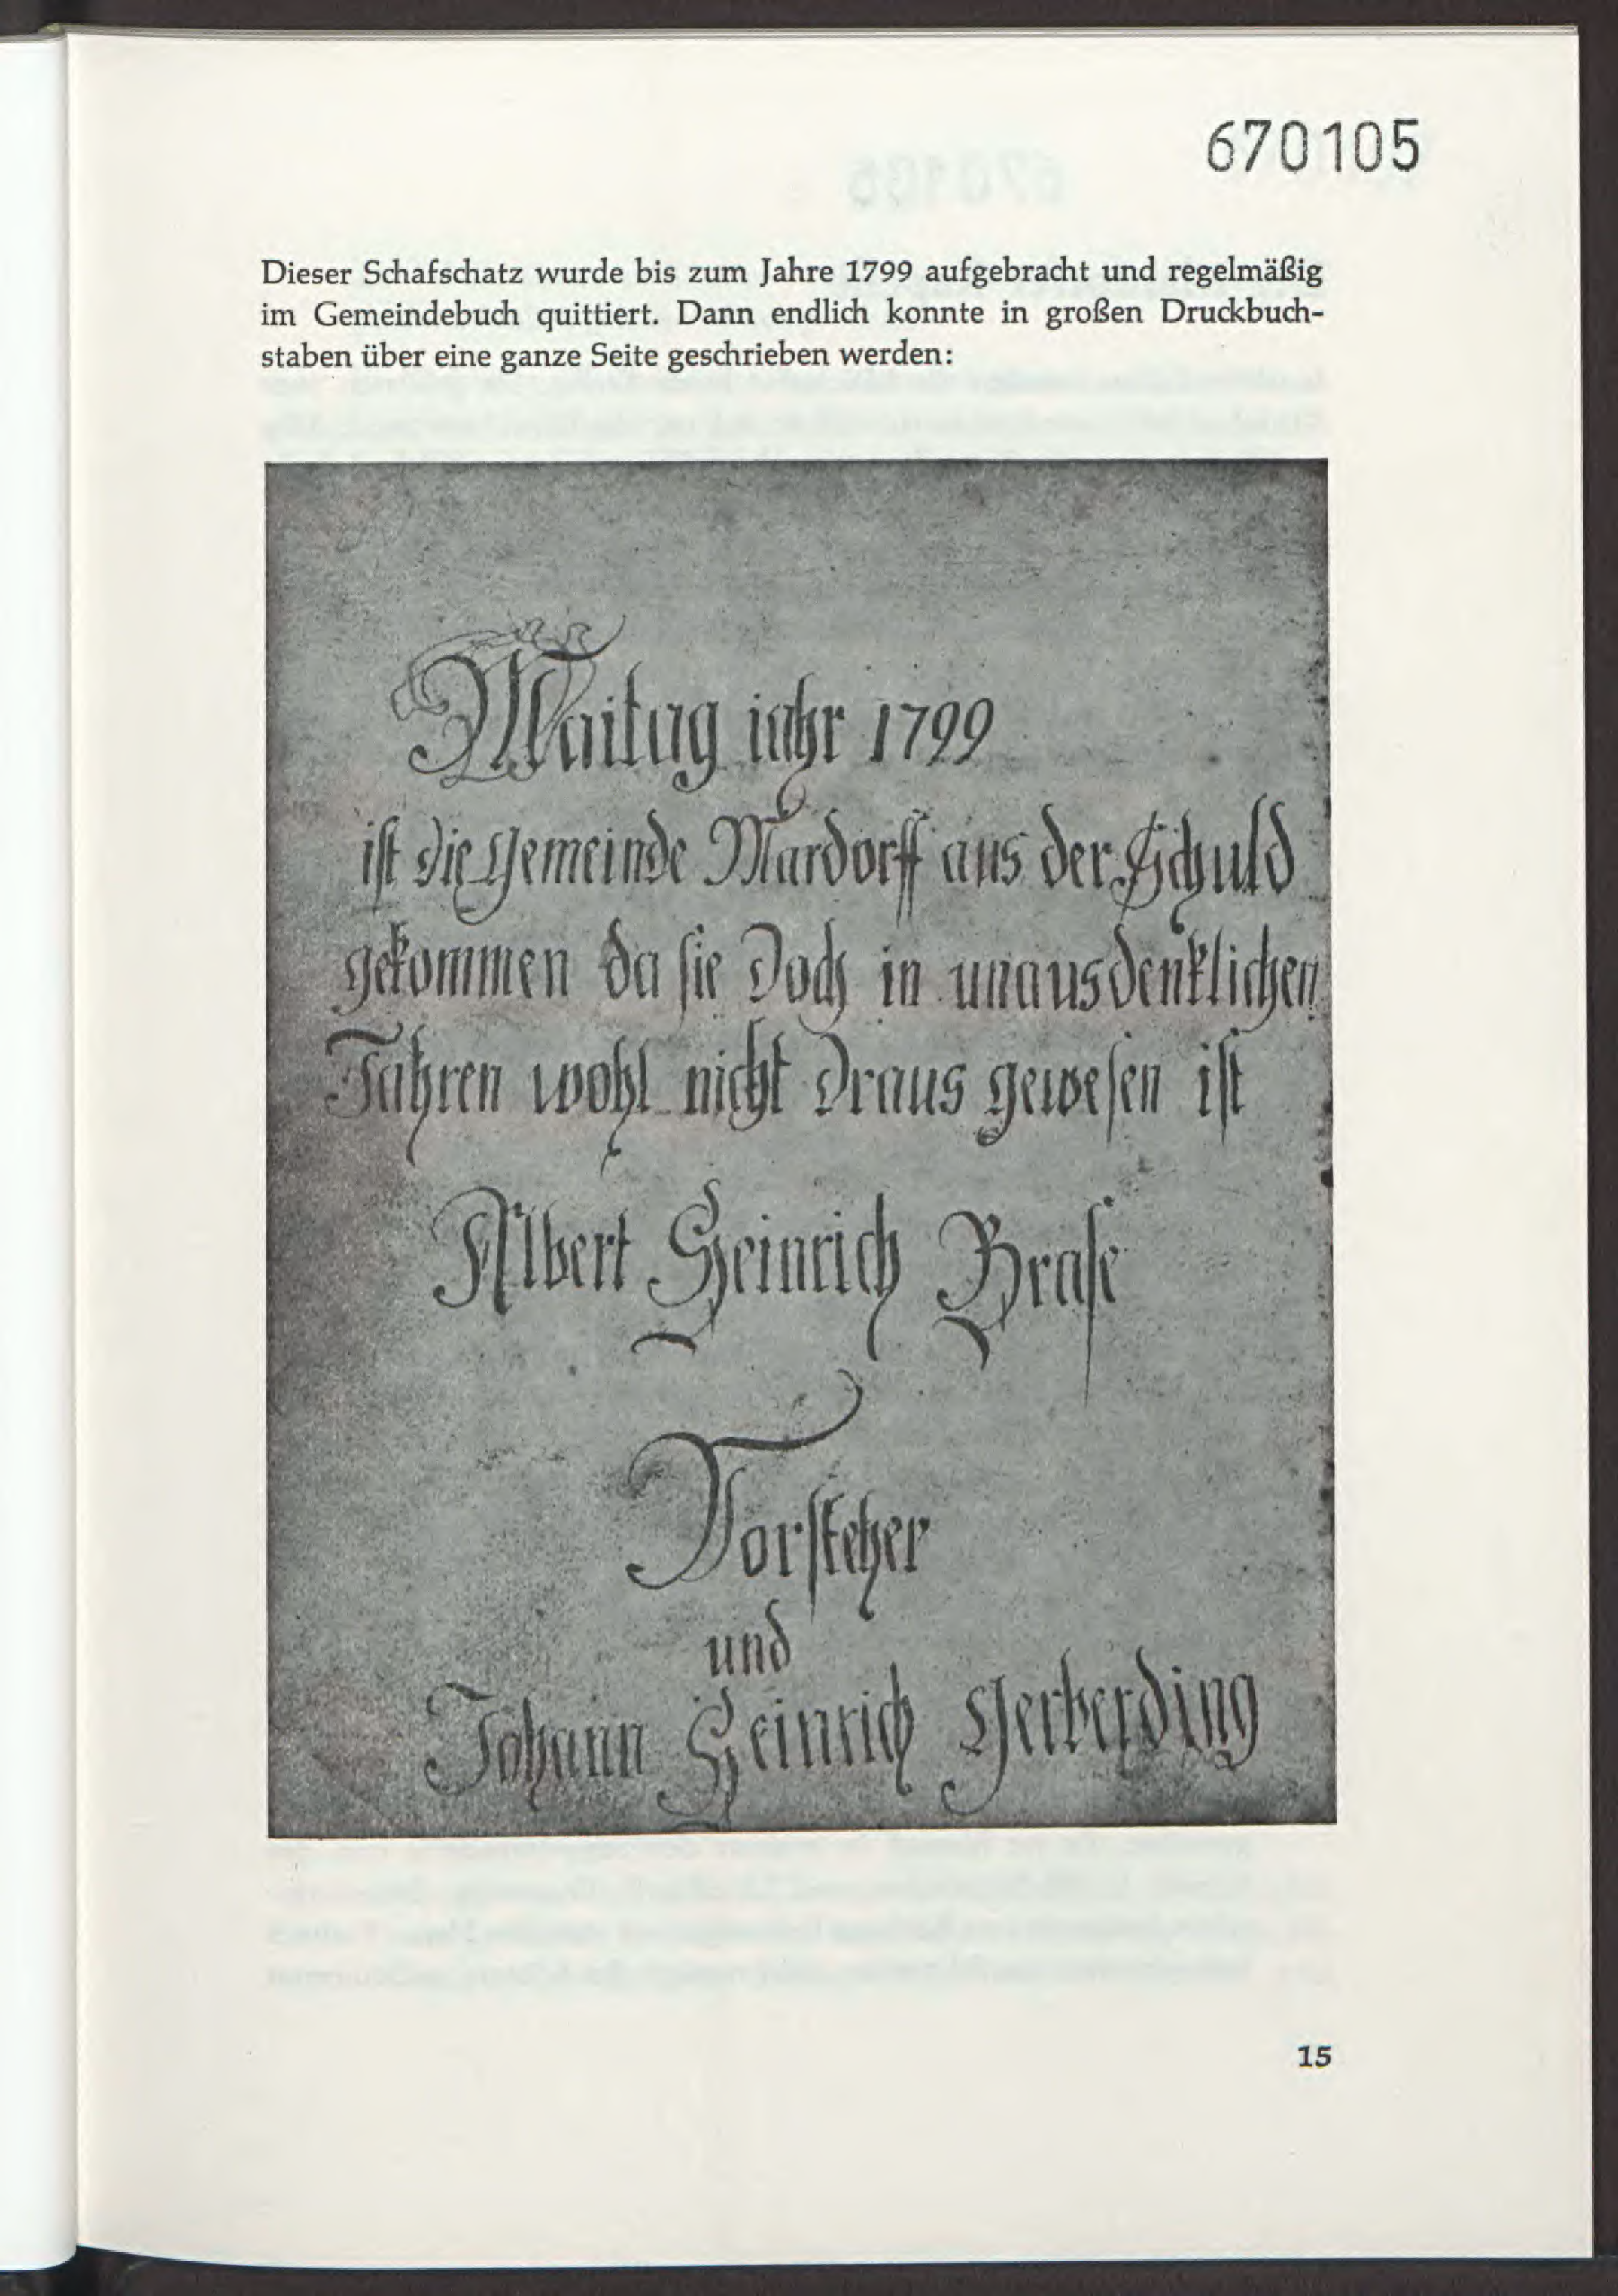 670105
Dieser Schafschatz wurde bis zum Jahre 1799 aufgebracht und regelmäßig
im Gemeindebuch quittiert. Dann endlich konnte in großen Druckbuch-
staben über eine ganze Seite geschrieben werden:
Maitag iahr 1799
ist die Gemeinde Mardorff aus der Schuld
gekommen da sie doch in unausdenklichen
Jahren wohl nicht draus gewesen ist
Albert Heinrich Brase
Vorsteher
und
Johann Heinrich Gerberding
15